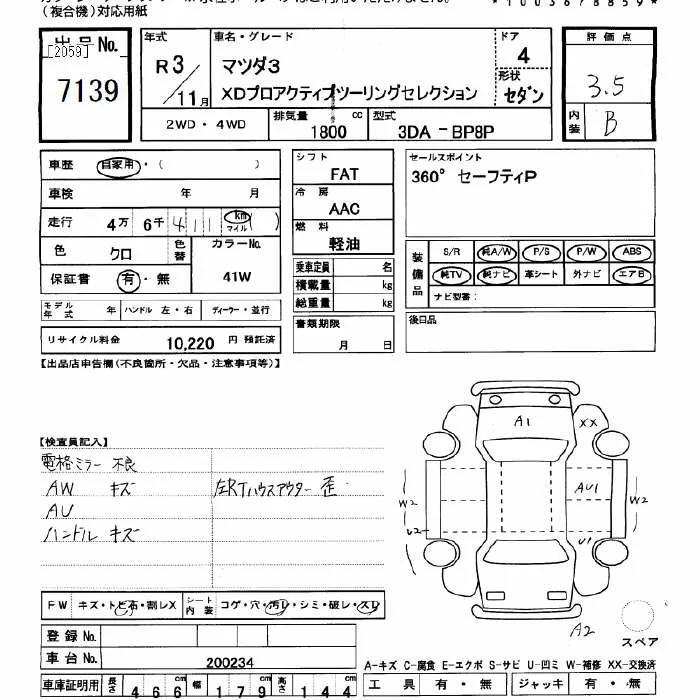 (複合機)対応用紙
*1003678859*
出品No.
[2059]
7139
年式
R 3 / 11 月
車名・グレード
マツダ3
XDプロアクティブツーリングセレクション
ドア
4
形状
セダン
評価点
3.5
内装
B
2WD・4WD
排気量
1800 cc
型式
3DA -BP8P
車歴 自家用・( )
車検 年 月
走行 4万 6千 411 km マイル ( )
色 クロ 色替
カラーNo.
41W
保証書 有・無
モデル年式 年 ハンドル 左・右 ディーラー・並行
リサイクル料金 10,220 円 預託済
シフト
FAT
冷房
AAC
燃料
軽油
乗車定員 名
積載量 kg
総重量 kg
書類期限
月 日
セールスポイント
360° セーフティP
装備品
S/R 純A/W P/S P/W ABS
純TV 純ナビ 革シート 外ナビ エアB
ナビ型番:
後日品
【出品店申告欄(不良箇所・欠品・注意事項等)】
【検査員記入】
電格ミラー 不良
AW キズ
左RTハウスアウター 歪
AU
ハンドル キズ
A1
XX
AU1
W2
W2
U2
U1
A2
スペア
FW キズ・トビ石・割レX
シート内装 コゲ・穴・汚レ・シミ・破レ・スレ
登録No.
車台No. 200234
車庫証明用 長さ 466 cm 幅 179 cm 高さ 144 cm
A-キズ C-腐食 E-エクボ S-サビ U-凹ミ W-補修 XX-交換済
工具 有・無 ジャッキ 有・無